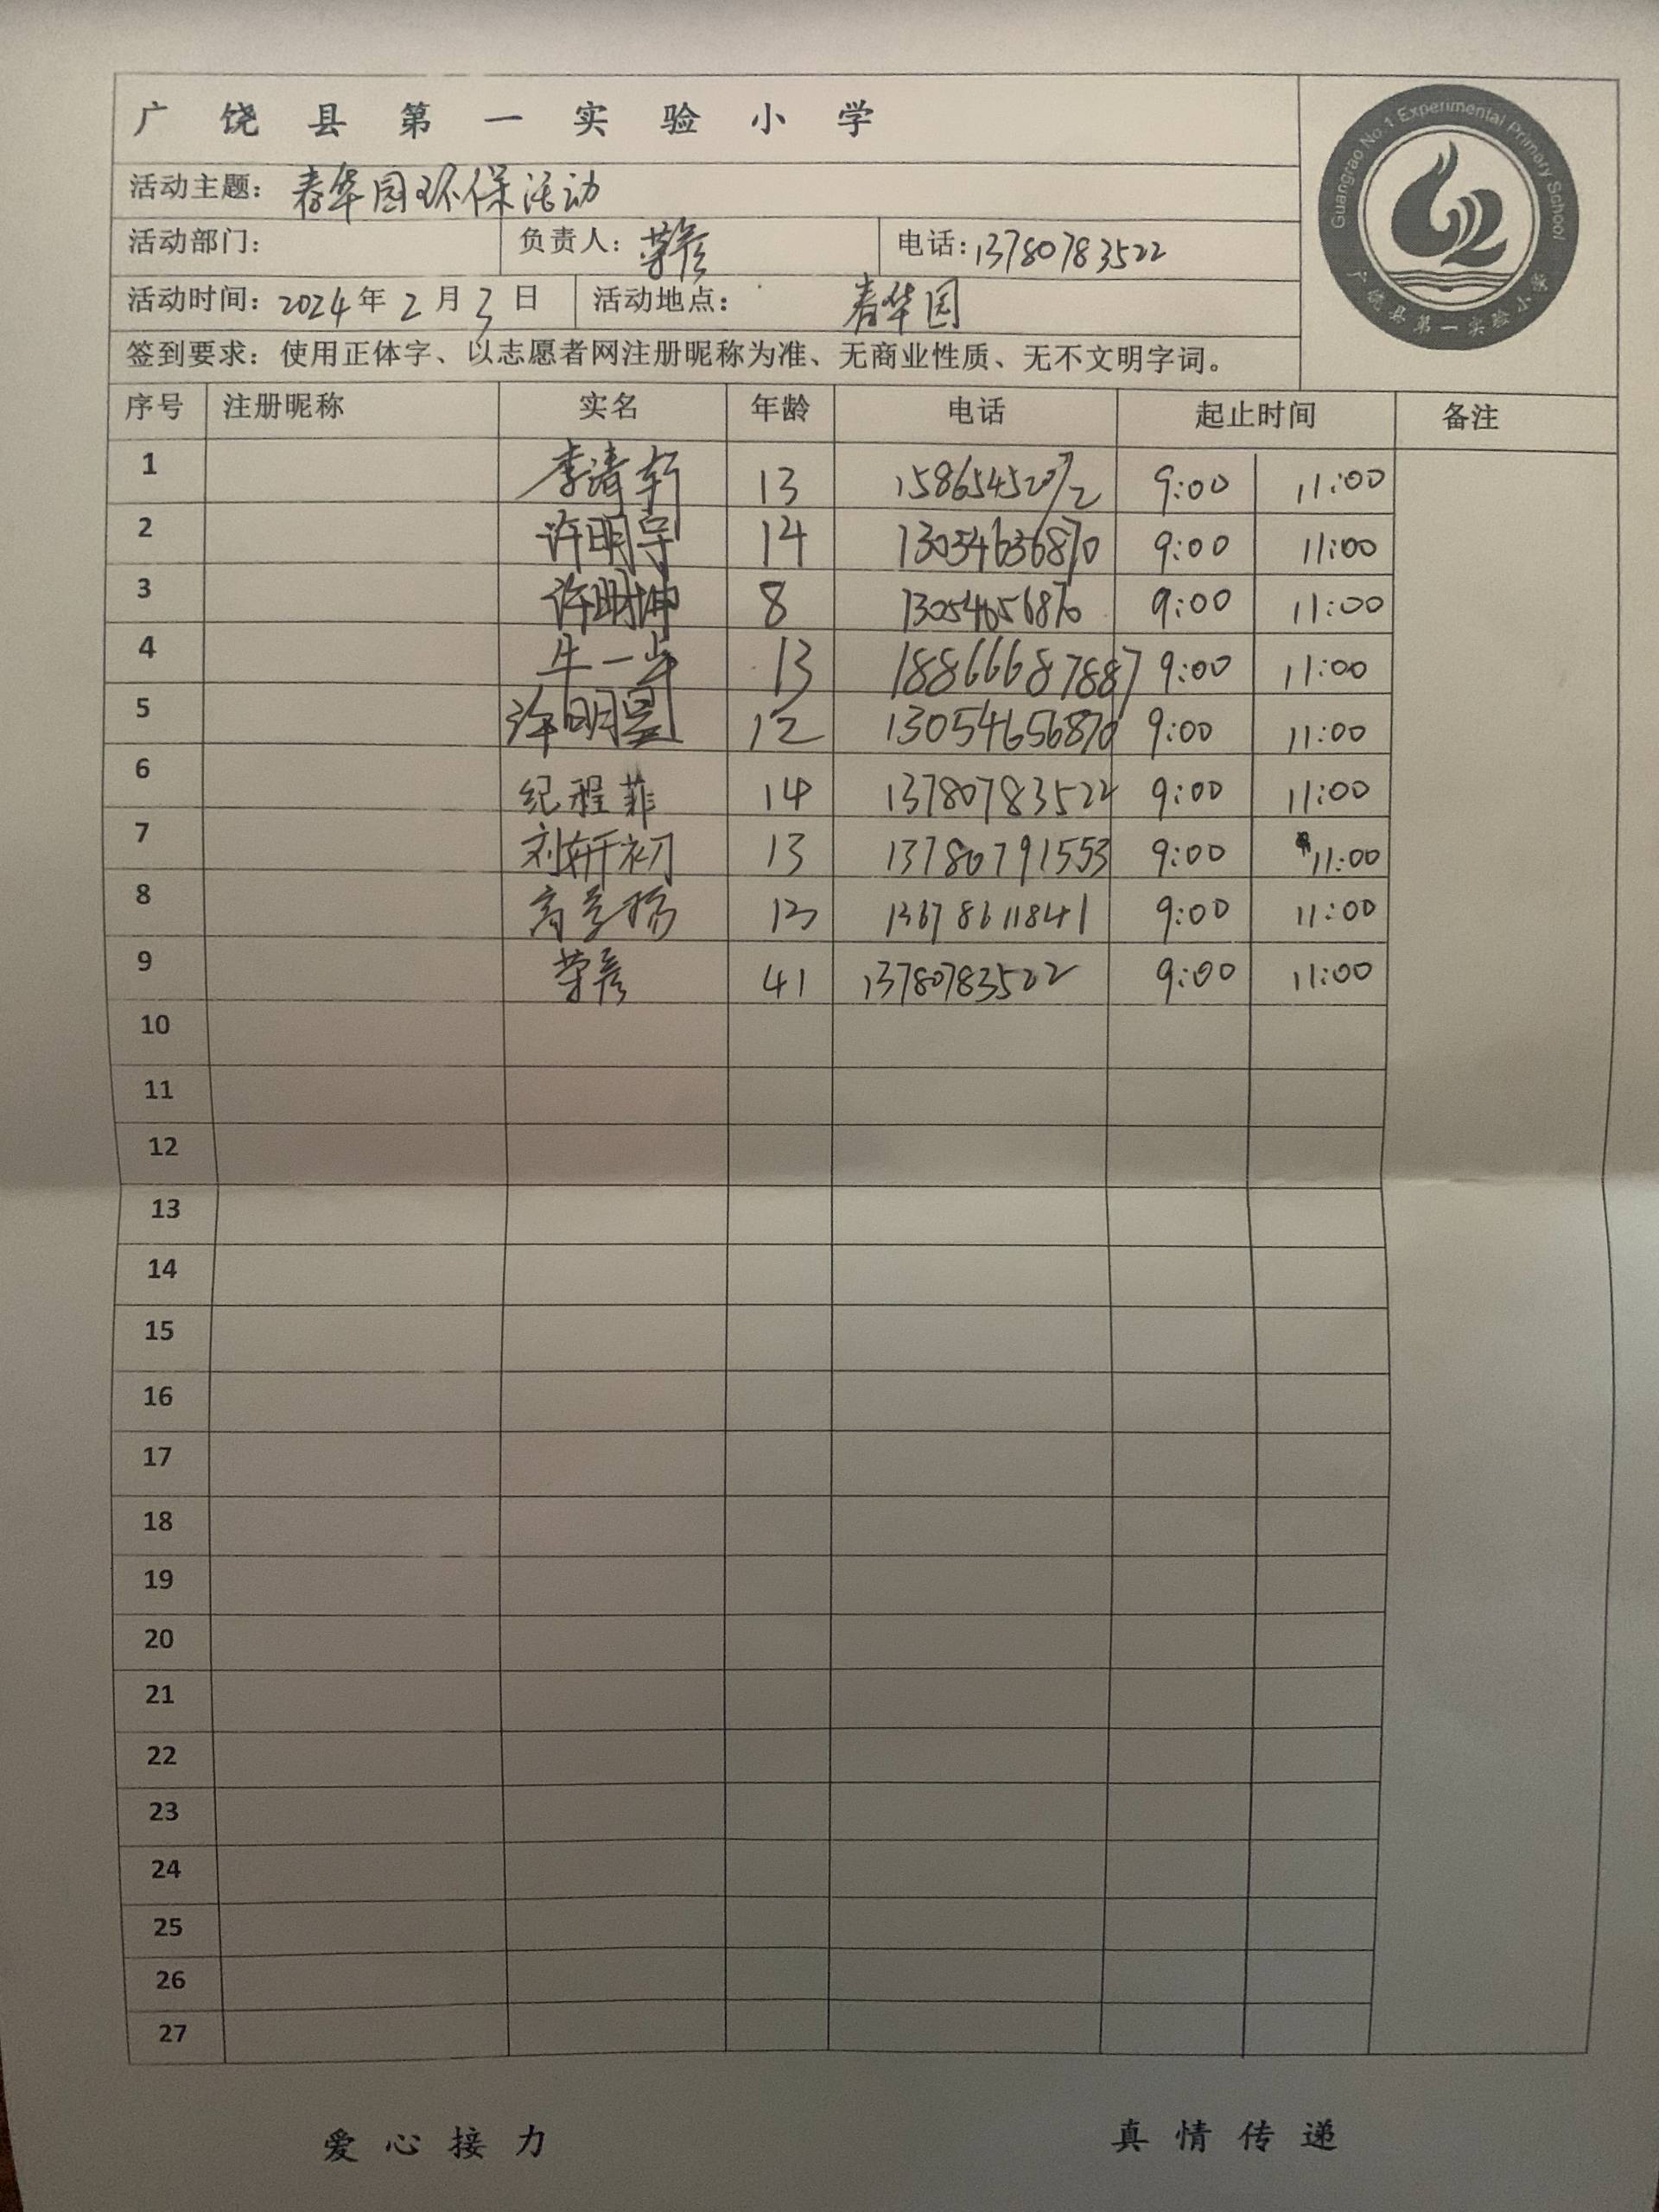 广饶县第一实验小学
Guangrao No.1 Experimental Primary School
广饶县第一实验小学
活动主题：春华园环保活动
活动部门： 负责人：荣彦 电话：13780783522
活动时间：2024年2月3日 活动地点： 春华园
签到要求：使用正体字、以志愿者网注册昵称为准、无商业性质、无不文明字词。
序号 注册昵称 实名 年龄 电话 起止时间 备注
1 李清轩 13 15865452072 9:00 11:00
2 许明宇 14 13054656870 9:00 11:00
3 许明坤 8 13054656870 9:00 11:00
4 牛一步 13 18866687887 9:00 11:00
5 许明昊 12 13054656870 9:00 11:00
6 纪程菲 14 13780783522 9:00 11:00
7 刘轩初 13 13780791553 9:00 11:00
8 13 13678611841 9:00 11:00
9 荣彦 41 13780783522 9:00 11:00
10
11
12
13
14
15
16
17
18
19
20
21
22
23
24
25
26
27
爱心接力 真情传递